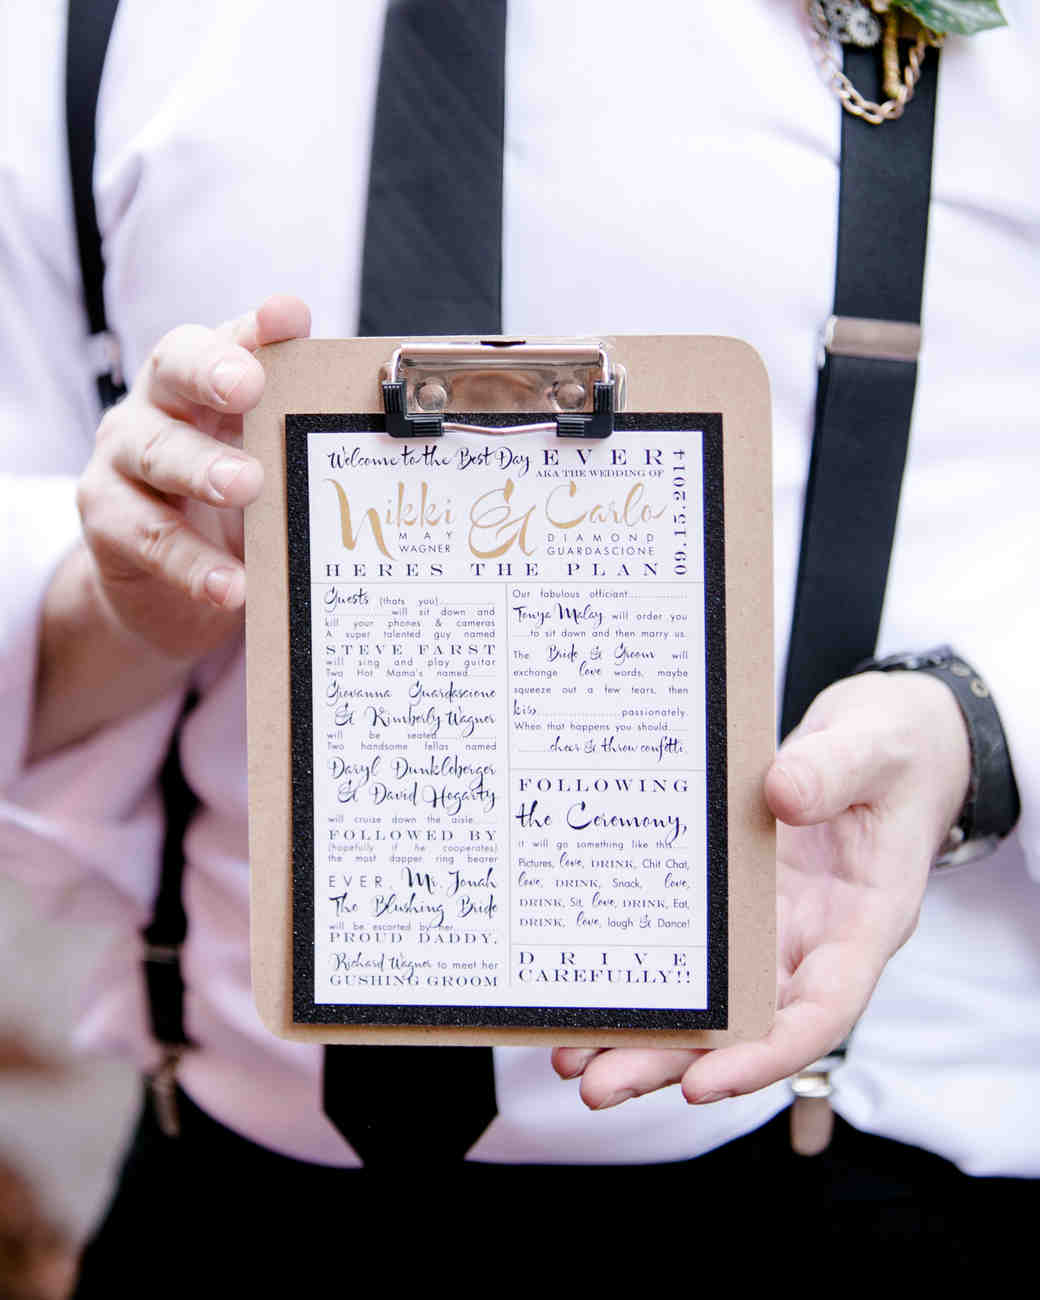 Welcome to the Best Day EVER
AKA THE WEDDING OF
Nikki & Carlo
MAY DIAMOND
WAGNER GUARDASCIONE
09.15.2014
HERES THE PLAN
Guests (thats you)..............
..............will sit down and
kill your phones & cameras
A super talented guy named
STEVE FARST
will sing and play guitar
Two Hot Mama's named.......
Giovanna Guardascione
& Kimberly Wagner
will be seated..............
Two handsome fellas named
Daryl Dunkleberger
& David Hogarty
will cruise down the aisle.....
FOLLOWED BY
(hopefully if he cooperates)
the most dapper ring bearer
EVER, Mr. Jonah
The Blushing Bride
will be escorted by her..........
PROUD DADDY,
Richard Wagner to meet her
GUSHING GROOM
Our fabulous officiant...............
Tonya Malay will order you
....to sit down and then marry us.
The Bride & Groom will
exchange love words, maybe
squeeze out a few tears, then
kiss.....................passionately.
When that happens you should.....
........cheer & throw confetti.
FOLLOWING
the Ceremony,
it will go something like this....
Pictures, love, DRINK, Chit Chat,
love, DRINK, Snack, love,
DRINK, Sit, love, DRINK, Eat,
DRINK, love, laugh & Dance!
DRIVE
CAREFULLY!!